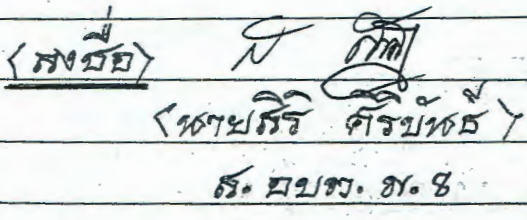 (ลงชื่อ) ส
(นายสิริ ศิริบันธ์)
ส. อบต. ม. 8